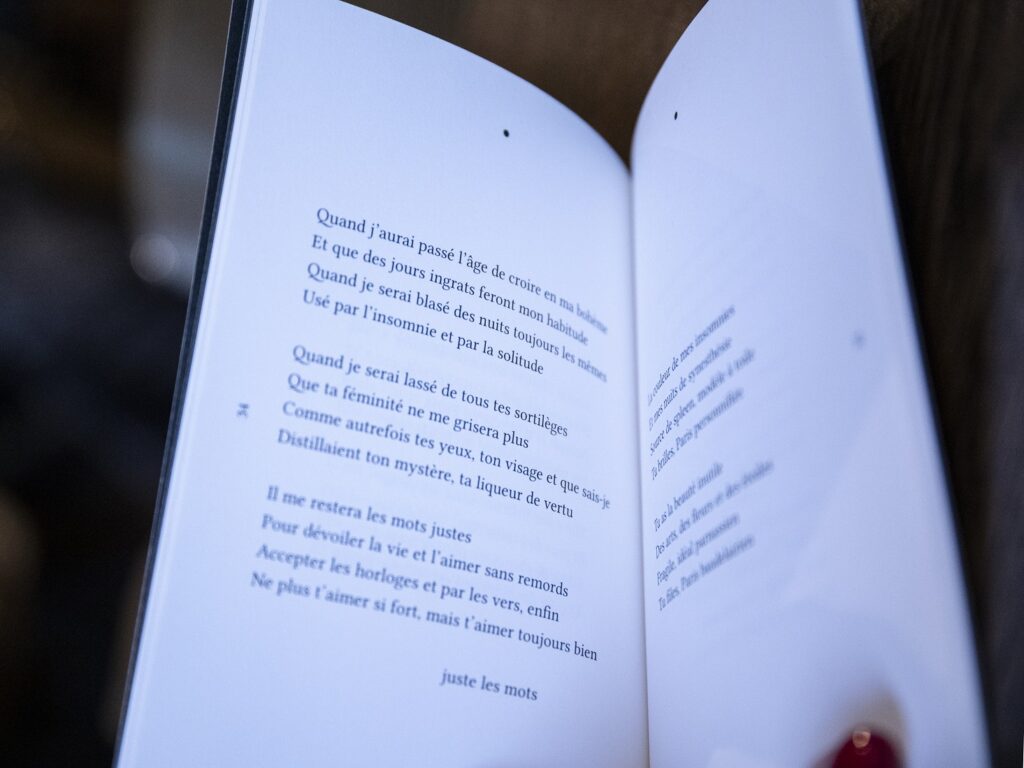 Quand j'aurai passé l'âge de croire en ma bohème
Et que des jours ingrats feront mon habitude
Quand je serai blasé des nuits toujours les mêmes
Usé par l'insomnie et par la solitude
Quand je serai lassé de tous tes sortilèges
Que ta féminité ne me grisera plus
Comme autrefois tes yeux, ton visage et que sais-je
Distillaient ton mystère, ta liqueur de vertu
Il me restera les mots justes
Pour dévoiler la vie et l'aimer sans remords
Accepter les horloges et par les vers, enfin
Ne plus t'aimer si fort, mais t'aimer toujours bien
juste les mots
La couleur de mes insomnies
Et mes nuits de synesthésie
Source de spleen, modèle à toile
Tu brilles, Paris personnifiée
Tu as la beauté inutile
Des arts, des fleurs et des étoiles
Fragile, idéal parnassien
Tu files, Paris baudelairien